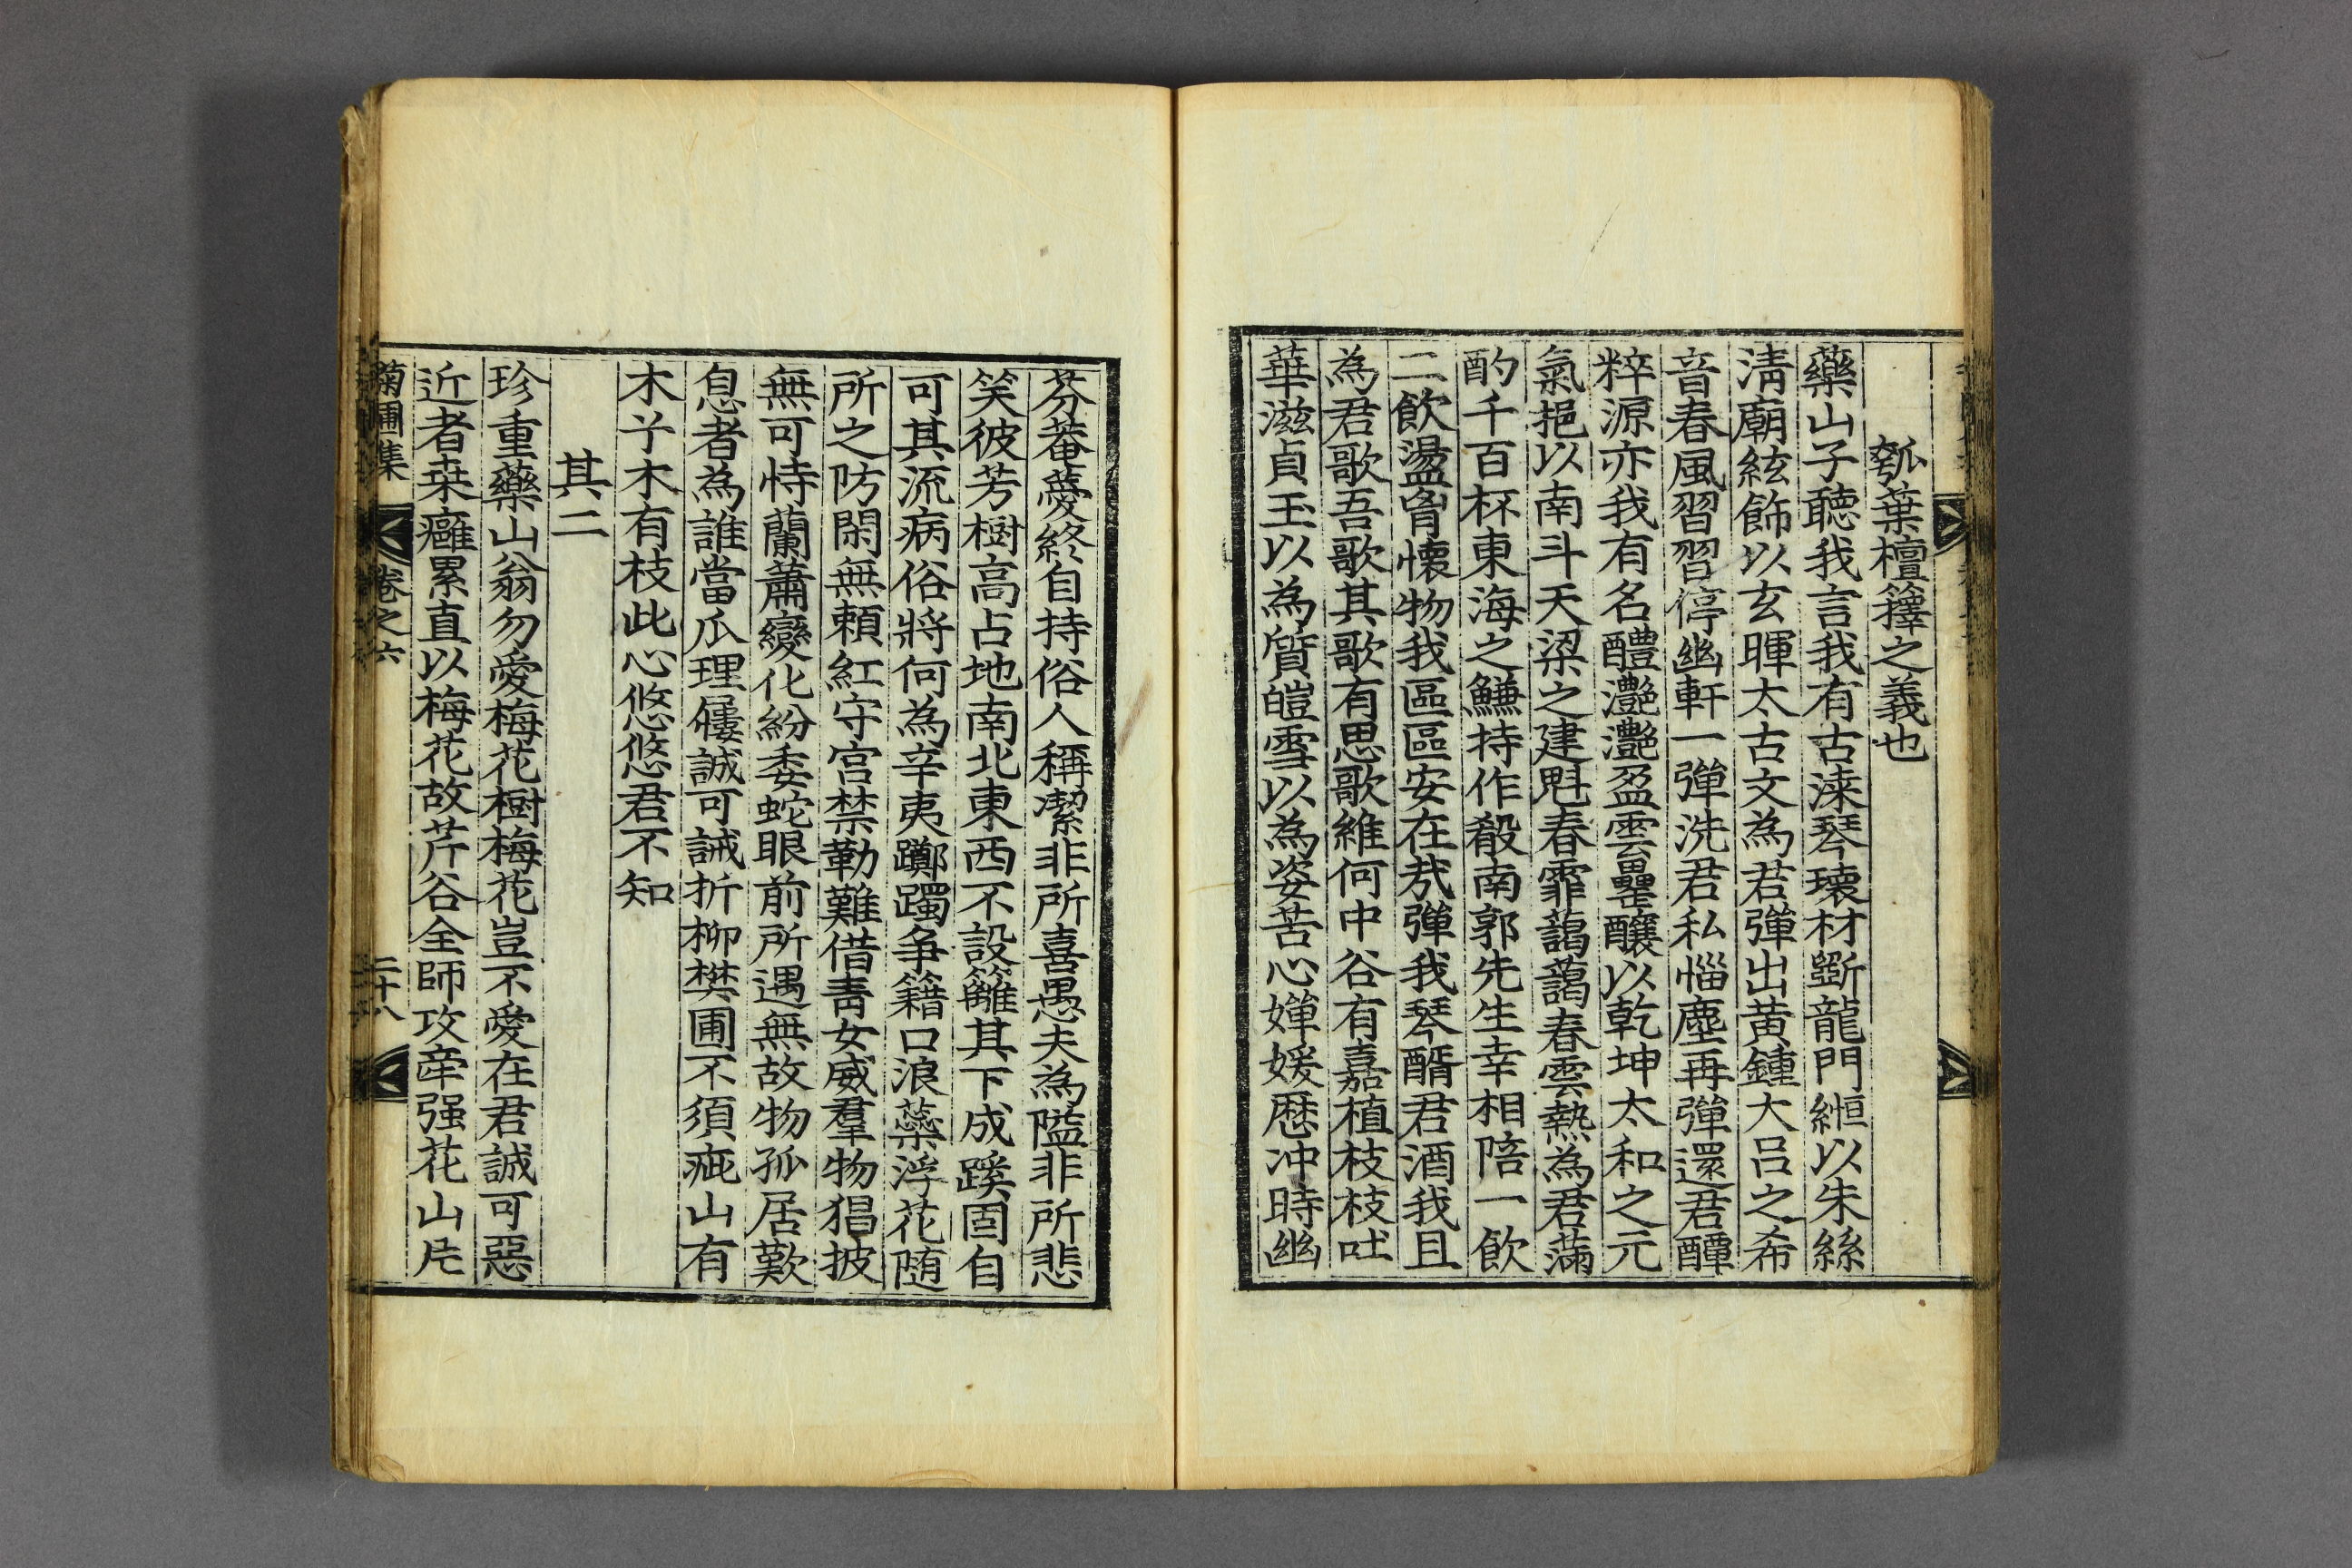 瓠葉檀籜之義也
藥山子聽我言我有古溙琴瓌材斲龍門緪以朱絲
淸廟絃飾以玄暉太古文為君彈出黃鍾大呂之希
音春風習習停幽軒一彈洗君私惱塵再彈還君醰
粹源亦我有名醴灔灔盈雲罍釀以乾坤太和之元
氣挹以南斗天梁之建魁春霏藹藹春雲熱為君滿
酌千百杯東海之鱇持作殽南郭先生幸相陪一飮
二飮盪胷懷物我區區安在㢤彈我琴醑君酒我且
為君歌吾歌其歌有思歌維何中谷有嘉植枝枝吐
華滋貞玉以為質皚雪以為姿苦心嬋媛歷冲時幽
芬菴薆終自持俗人稱潔非所喜愚夫為隘非所悲
笑彼芳樹高占地南北東西不設籬其下成蹊固自
可其流病俗將何為辛夷躑躅争籍口浪蘂浮花随
所之防閑無賴紅守宮禁勒難借靑女威羣物猖披
無可恃蘭蕭變化紛委蛇眼前所遇無故物孤居歎
息者為誰當瓜理屨誠可誡折柳樊圃不須疵山有
木兮木有枝此心悠悠君不知
其二
珍重藥山翁勿愛梅花樹梅花豈不愛在君誠可惡
近者桒癰累直以梅花故芹谷全師攻牽强花山𠂆
菊圃集
卷之六
二十八